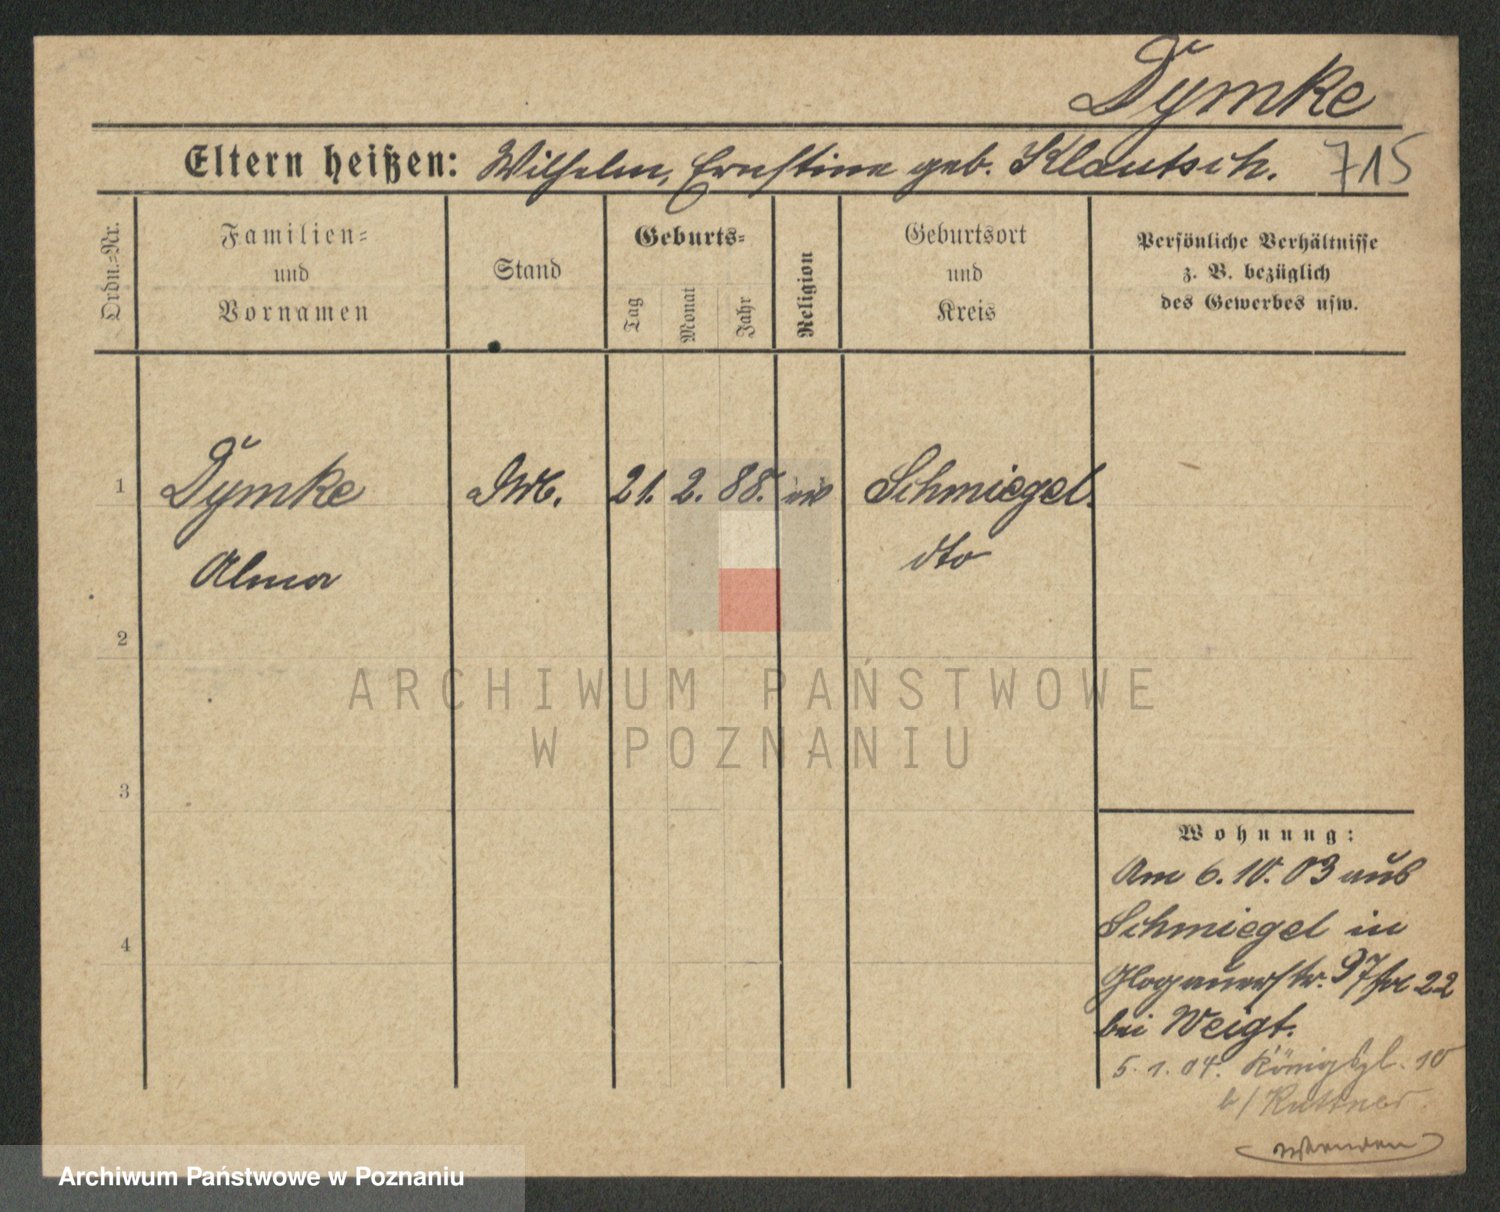 Dymke
Eltern heißen: Wilhelm, Ernstine geb. Klautsch. 715
Ordn.=Nr.
Familien=
und
Vornamen
Stand
Geburts=
Tag
Monat
Jahr
Religion
Geburtsort
und
Kreis
Persönliche Verhältnisse
z. B. bezüglich
des Gewerbes usw.
1 Dymke 21. 2. 88. ev Schmiegel.
Alma dto
2
3
4
ARCHIWUM PAŃSTWOWE
W POZNANIU
Wohnung:
Am 6. 10. 03 aus
Schmiegel in
Glogauerstr. 97 22
bei Weigt.
5. 1. 04. Königspl. 10
b/ Kuttner
Wenden
Archiwum Państwowe w Poznaniu